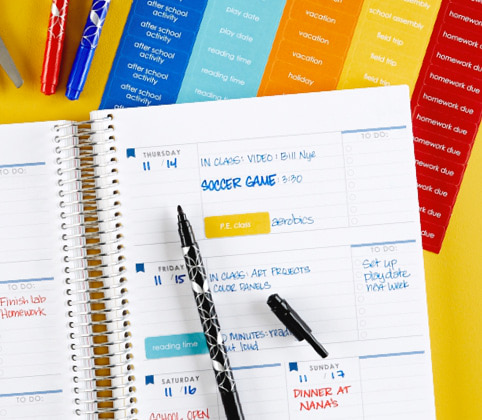 after school
activity
after school
activity
after school
activity
after school
activity
after school
activity
play date
play date
reading time
reading time
vacation
vacation
vacation
holiday
school assembly
field trip
field trip
field trip
homework due
homework due
homework due
homework due
homework due
homework due
homework due
homework due
homework due
TO DO:
Finish lab
Homework
TO DO:
THURSDAY
11 14
IN CLASS: VIDEO: Bill Nye
SOCCER GAME: 3:30
P.E. class aerobics
TO DO:
FRIDAY
11 15
IN CLASS: ART PROJECTS
COLOR PANELS
reading time
MINUTES: read
out loud
TO DO:
Set up
playdate
next week
SATURDAY
11 16
SCHOOL OPEN
SUNDAY
11 17
DINNER AT
NANA'S